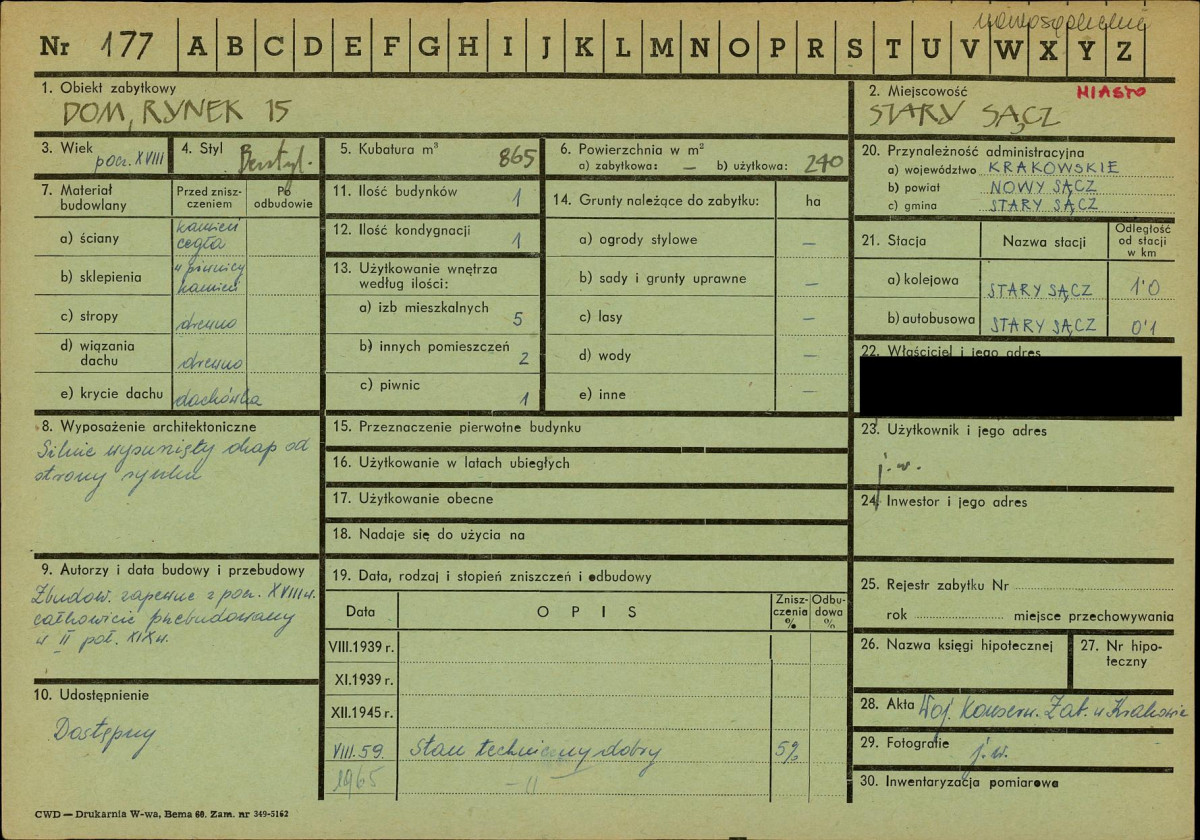 nowosądeckie
Nr 177 A B C D E F G H I J K L M N O P R S T U V W X Y Z
1. Obiekt zabytkowy
DOM, RYNEK 15
2. Miejscowość MIASTO
STARY SĄCZ
3. Wiek
pocz. XVIII
4. Styl Bezstyl.
5. Kubatura m³ 865
6. Powierzchnia w m²
a) zabytkowa: — b) użytkowa: 240
7. Materiał budowlany
Przed zniszczeniem
Po odbudowie
a) ściany kamień
cegła
b) sklepienia w piwnicy
kamień
c) stropy drewno
d) wiązania dachu drewno
e) krycie dachu dachówka
8. Wyposażenie architektoniczne
Silnie wysunięty okap od
strony rynku
9. Autorzy i data budowy i przebudowy
Zbudow. zapewne z pocz. XVIII w.
całkowicie przebudowany
w II poł. XIX w.
10. Udostępnienie
Dostępny
11. Ilość budynków 1
12. Ilość kondygnacji 1
13. Użytkowanie wnętrza
według ilości:
a) izb mieszkalnych 5
b) innych pomieszczeń 2
c) piwnic 1
14. Grunty należące do zabytku: ha
a) ogrody stylowe —
b) sady i grunty uprawne —
c) lasy —
d) wody —
e) inne —
15. Przeznaczenie pierwotne budynku
16. Użytkowanie w latach ubiegłych
17. Użytkowanie obecne
18. Nadaje się do użycia na
19. Data, rodzaj i stopień zniszczeń i odbudowy
Data OPIS Zniszczenia % Odbudowa %
VIII.1939 r.
XI.1939 r.
XII.1945 r.
VIII.59. Stan techniczny dobry 5%
1965 —"—
20. Przynależność administracyjna
a) województwo KRAKOWSKIE
b) powiat NOWY SĄCZ
c) gmina STARY SĄCZ
21. Stacja Nazwa stacji Odległość od stacji w km
a) kolejowa STARY SĄCZ 1'0
b) autobusowa STARY SĄCZ 0'1
22. Właściciel i jego adres
23. Użytkownik i jego adres
j.w.
24. Inwestor i jego adres
25. Rejestr zabytku Nr
rok miejsce przechowywania
26. Nazwa księgi hipotecznej
27. Nr hipoteczny
28. Akta Woj. Konserw. Zab. w Krakowie
29. Fotografie j.w.
30. Inwentaryzacja pomiarowa
CWD — Drukarnia W-wa, Bema 60. Zam. nr 349-5162